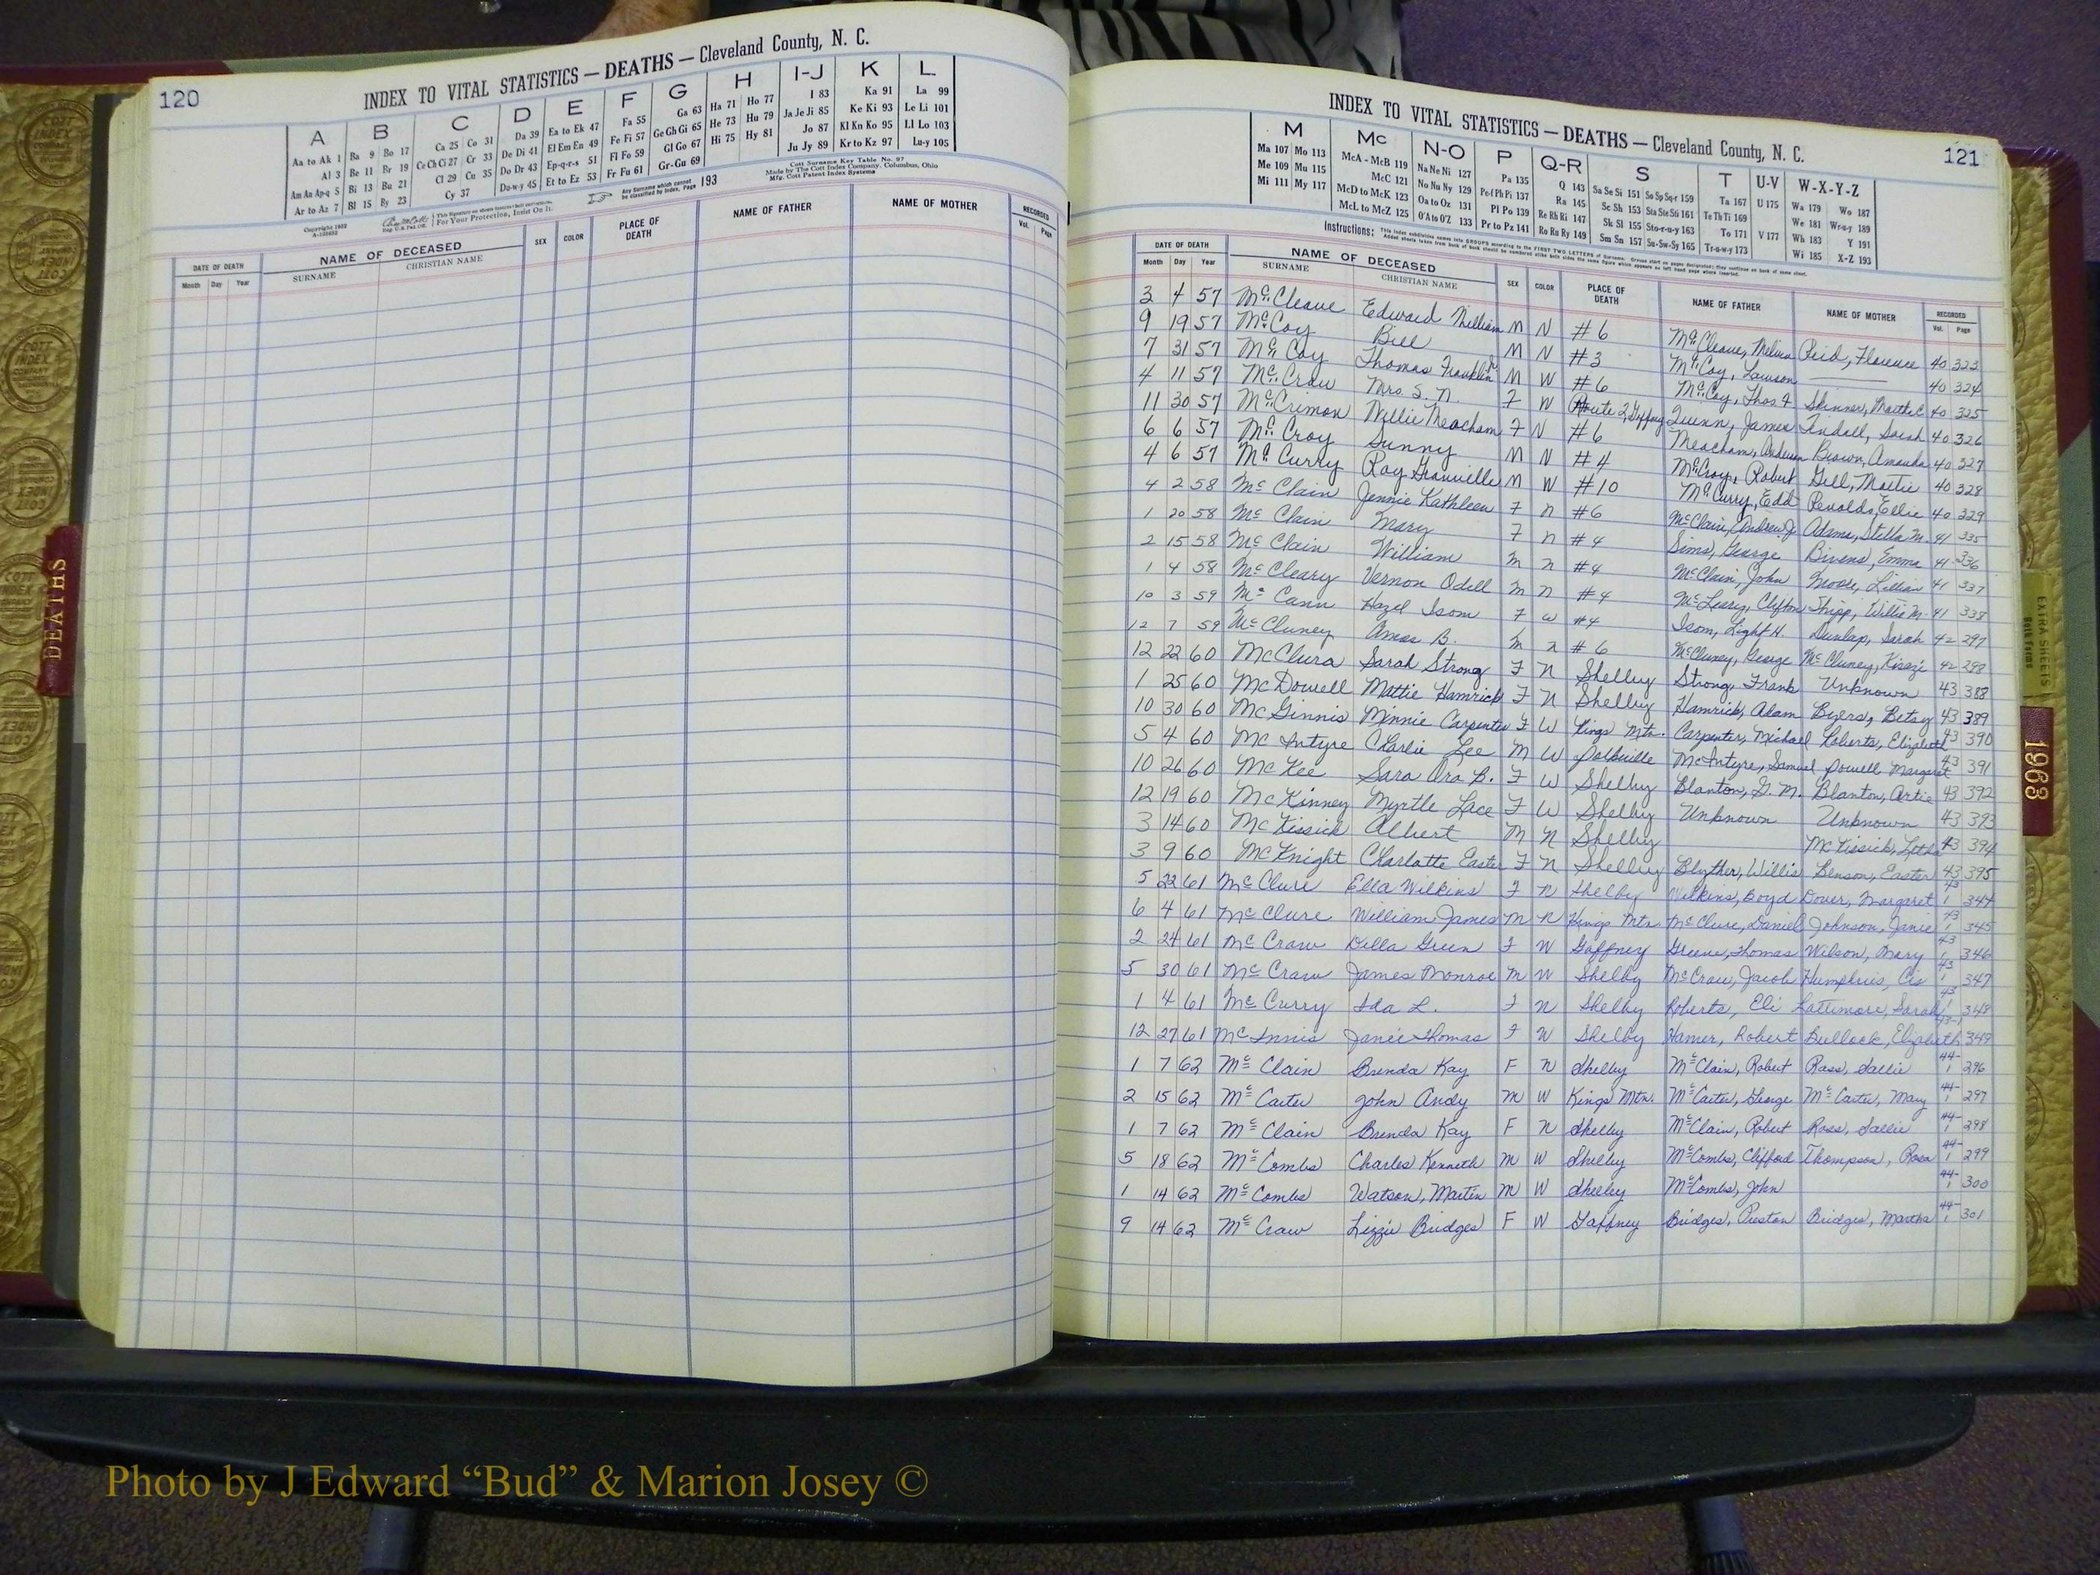 120
INDEX TO VITAL STATISTICS — DEATHS — Cleveland County, N. C.
A B C D E F G H I-J K L
Aa to Ak 1 Ba 9 Bo 17 Ca 25 Co 31 Da 39 Ea to Ek 47 Fa 55 Ga 63 Ha 71 Ho 77 I 83 Ka 91 La 99
Al 3 Be 11 Br 19 Ce Ch Ci 27 Cr 33 De Di 41 El Em En 49 Fe Fi 57 Ge Gh Gi 65 He 73 Hu 79 Ja Je Ji 85 Ke Ki 93 Le Li 101
Am An Ap-q 5 Bi 13 Bu 21 Cl 29 Cu 35 Do Dr 43 Ep-q-r-s 51 Fl Fo 59 Gl Go 67 Hi 75 Hy 81 Jo 87 Kl Kn Ko 95 Ll Lo 103
Ar to Az 7 Bl 15 By 23 Cy 37 Du-w-y 45 Et to Ez 53 Fr Fu 61 Gr-Gu 69 Ju Jy 89 Kr to Kz 97 Lu-y 105
Cott Surname Key Table No. 97
Made by The Cott Index Company, Columbus, Ohio
Mfg. Cott Patent Index Systems
Any Surname which cannot be classified by Index, Page 193
For Your Protection, Insist On It.
DATE OF DEATH NAME OF DECEASED SEX COLOR PLACE OF DEATH NAME OF FATHER NAME OF MOTHER RECORDED
Month Day Year SURNAME CHRISTIAN NAME Vol. Page
121
INDEX TO VITAL STATISTICS — DEATHS — Cleveland County, N. C.
M Mc N-O P Q-R S T U-V W-X-Y-Z
Ma 107 Mo 113 McA - McB 119 Na Ne Ni 127 Pa 135 Q 143 Sa Se Si 151 So Sp Sq-r 159 Ta 167 U 175 Wa 179 Wo 187
Me 109 Mu 115 McC 121 No Nu Ny 129 Pe-f Ph Pi 137 Ra 145 Sc Sh 153 Sta Ste Sti 161 Te Th Ti 169 We 181 Wr-u-y 189
Mi 111 My 117 McD to McK 123 Oa to Oz 131 Pl Po 139 Re Rh Ri 147 Sk Sl 155 Sto-r-u-y 163 To 171 V 177 Wh 183 Y 191
McL to McZ 125 O'A to O'Z 133 Pr to Pz 141 Ro Ru Ry 149 Sm Sn 157 Su-Sw-Sy 165 Tr-u-w-y 173 Wi 185 X-Z 193
Instructions:
DATE OF DEATH NAME OF DECEASED SEX COLOR PLACE OF DEATH NAME OF FATHER NAME OF MOTHER RECORDED
Month Day Year SURNAME CHRISTIAN NAME Vol. Page
3 4 57 McCleave Edward William M N #6 McCleave, Melvin Reid, Florence 40 323
9 19 57 McCoy Bill M N #3 McCoy, Lawson 40 324
7 31 57 McCoy Thomas Franklin Jr. M W #6 McCoy, Thos. F Skinner, Martha C 40 325
4 11 57 McCraw Mrs. S. N. F W Route 2, Gaffney Quinn, James Tindall, Sarah 40 326
11 30 57 McCrimon Willie Meacham F N #6 Meacham, Anderson Brown, Amanda 40 327
6 6 57 McCroy Sunny M N #4 McCroy, Robert Gill, Mattie 40 328
4 6 57 McCurry Roy Granville M W #10 McCurry, Edd Penolds, Ellie 40 329
4 2 58 McClain Jennie Kathleen F n #6 McClain, Andrew J. Adams, Stella M. 41 335
1 20 58 McClain Mary F n #4 Sims, George Bivens, Emma 41 336
2 15 58 McClain William m n #4 McClain, John Moore, Lillian 41 337
1 4 58 McCleary Vernon Odell m n #4 McLeary, Clifton Shipp, Willie M. 41 338
10 3 59 McCann Hazel Isom F w #4 Isom, Light H. Dunlap, Sarah 42 297
12 7 59 McCluney Amos B. m n #6 McCluney, George McCluney, Kinzie 42 298
12 22 60 McClura Sarah Strong F N Shelby Strong, Frank Unknown 43 388
1 25 60 McDowell Mattie Hamrick F N Shelby Hamrick, Adam Byers, Betsy 43 389
10 30 60 McGinnis Minnie Carpenter F W Kings Mtn. Carpenter, Michael Roberts, Elizabeth 43 390
5 4 60 McIntyre Charlie Lee M W Polkville McIntyre, Samuel Powell, Margaret 43 391
10 26 60 McKee Sara Ora B. F W Shelby Blanton, G. M. Blanton, Artie 43 392
12 19 60 McKinney Myrtle Lace F W Shelby Unknown Unknown 43 393
3 14 60 McKissick Albert M N Shelby McKissick, Letha 43 394
3 9 60 McKnight Charlotte Easter F N Shelby Blyther, Willis Benson, Easter 43 395
5 22 61 McClure Ella Wilkins F N Shelby Wilkins, Boyd Dover, Margaret 43-1 344
6 4 61 McClure William James M N Kings Mtn. McClure, Daniel Johnson, Janie 43-1 345
2 24 61 McCraw Della Green F W Gaffney Greene, Thomas Wilson, Mary 43-1 346
5 30 61 McCraw James Monroe M W Shelby McCraw, Jacob Humphries, Cis 43-1 347
1 4 61 McCurry Ida L. F N Shelby Roberts, Eli Lattimore, Sarah 43-1 348
12 27 61 McInnis Janie Thomas F W Shelby Hamer, Robert Bullock, Elizabeth 43-1 349
1 7 62 McClain Brenda Kay F N Shelby McClain, Robert Ross, Sallie 44-1 296
2 15 62 McCarter John Andy M W Kings Mtn. McCarter, George McCarter, Mary 44-1 297
1 7 62 McClain Brenda Kay F N Shelby McClain, Robert Ross, Sallie 44-1 298
5 18 62 McCombs Charles Kenneth M W Shelby McCombs, Clifford Thompson, Rosa 44-1 299
1 14 62 McCombs Watson, Martin M W Shelby McCombs, John 44-1 300
9 14 62 McCraw Lizzie Bridges F W Gaffney Bridges, Preston Bridges, Martha 44-1 301
DEATHS
EXTRA SHEETS
1963
Photo by J Edward “Bud” & Marion Josey ©